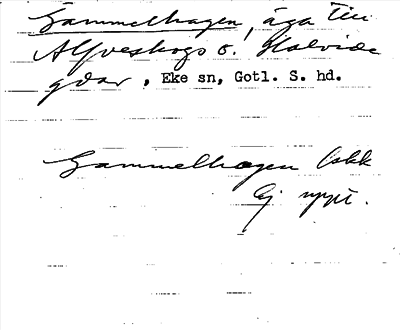 Gammelhagen, äga till
Alfveskogs o. Halvide
gdar, Eke sn, Gotl. S. hd.
Gammelhagen Osbk
Ej uppt.